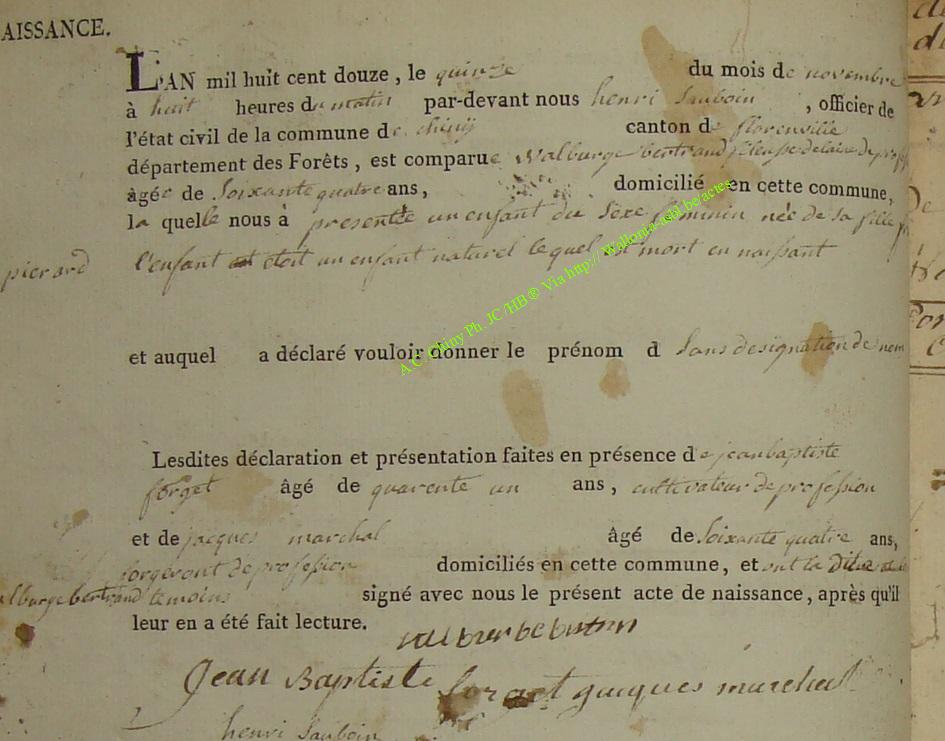 AISSANCE.
L'AN mil huit cent douze, le quinze du mois de novembre
à huit heures du matin par-devant nous henri Sauboin, officier de
l'état civil de la commune de chiny canton de florenville
département des Forêts, est comparue Walburge bertrand fileuse de laine de prof
âgée de Soixante quatre ans, domicilié en cette commune,
la quelle nous à presentée un enfant du Sexe feminin née de sa fille
pierard l'enfant etoit un enfant naturel lequel est mort en naissant
et auquel a déclaré vouloir donner le prénom d Sans designation de nom
Lesdites déclaration et présentation faites en présence de jean baptiste
forget âgé de quarente un ans, cultivateur de profession
et de jacques marchal âgé de Soixante quatre ans,
forgeront de profession domiciliés en cette commune, et ont la Ditte
alburge bertrand temoins signé avec nous le présent acte de naissance, après qu'il
leur en a été fait lecture.
Jean Baptiste forget guaques marchal
henri Sauboin
A.C. Chiny Ph. JC/HB® Via http://Wallonia-asbl.be/actes